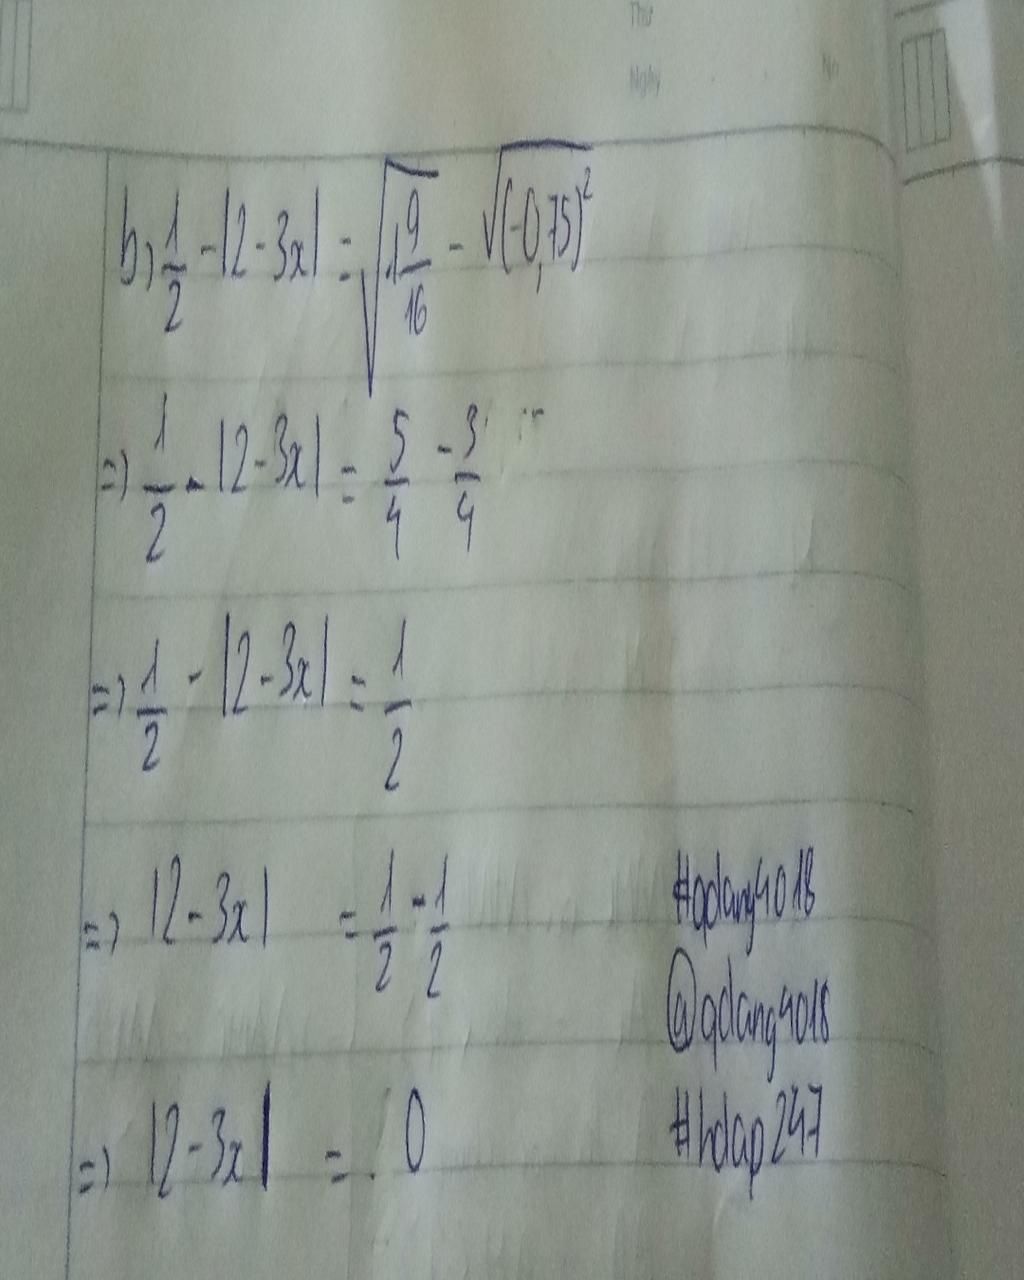 Thứ
Ngày No
b, 1/2 - |2 - 3x| = √(1 9/16) - √((-0,75)²)
=) 1/2 - |2 - 3x| = 5/4 - 3/4
=) 1/2 - |2 - 3x| = 1/2
=) |2 - 3x| = 1/2 - 1/2
#qdang4018
@qdang4018
=) |2 - 3x| = 0
#hdap247